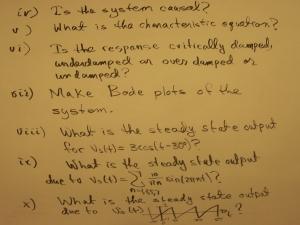 iv) Is the system causal?
v) What is the characteristic equation?
vi) Is the response critically damped,
underdamped or over damped or
undamped?
vii) Make Bode plots of the
system.
viii) What is the steady state output
for Vs(t)=3cos(t-30°)?
ix) What is the steady state output
due to Vs(t)=∑ 10/πn sin(2πnt)?
x) What is the steady state output
due to Vs(t)